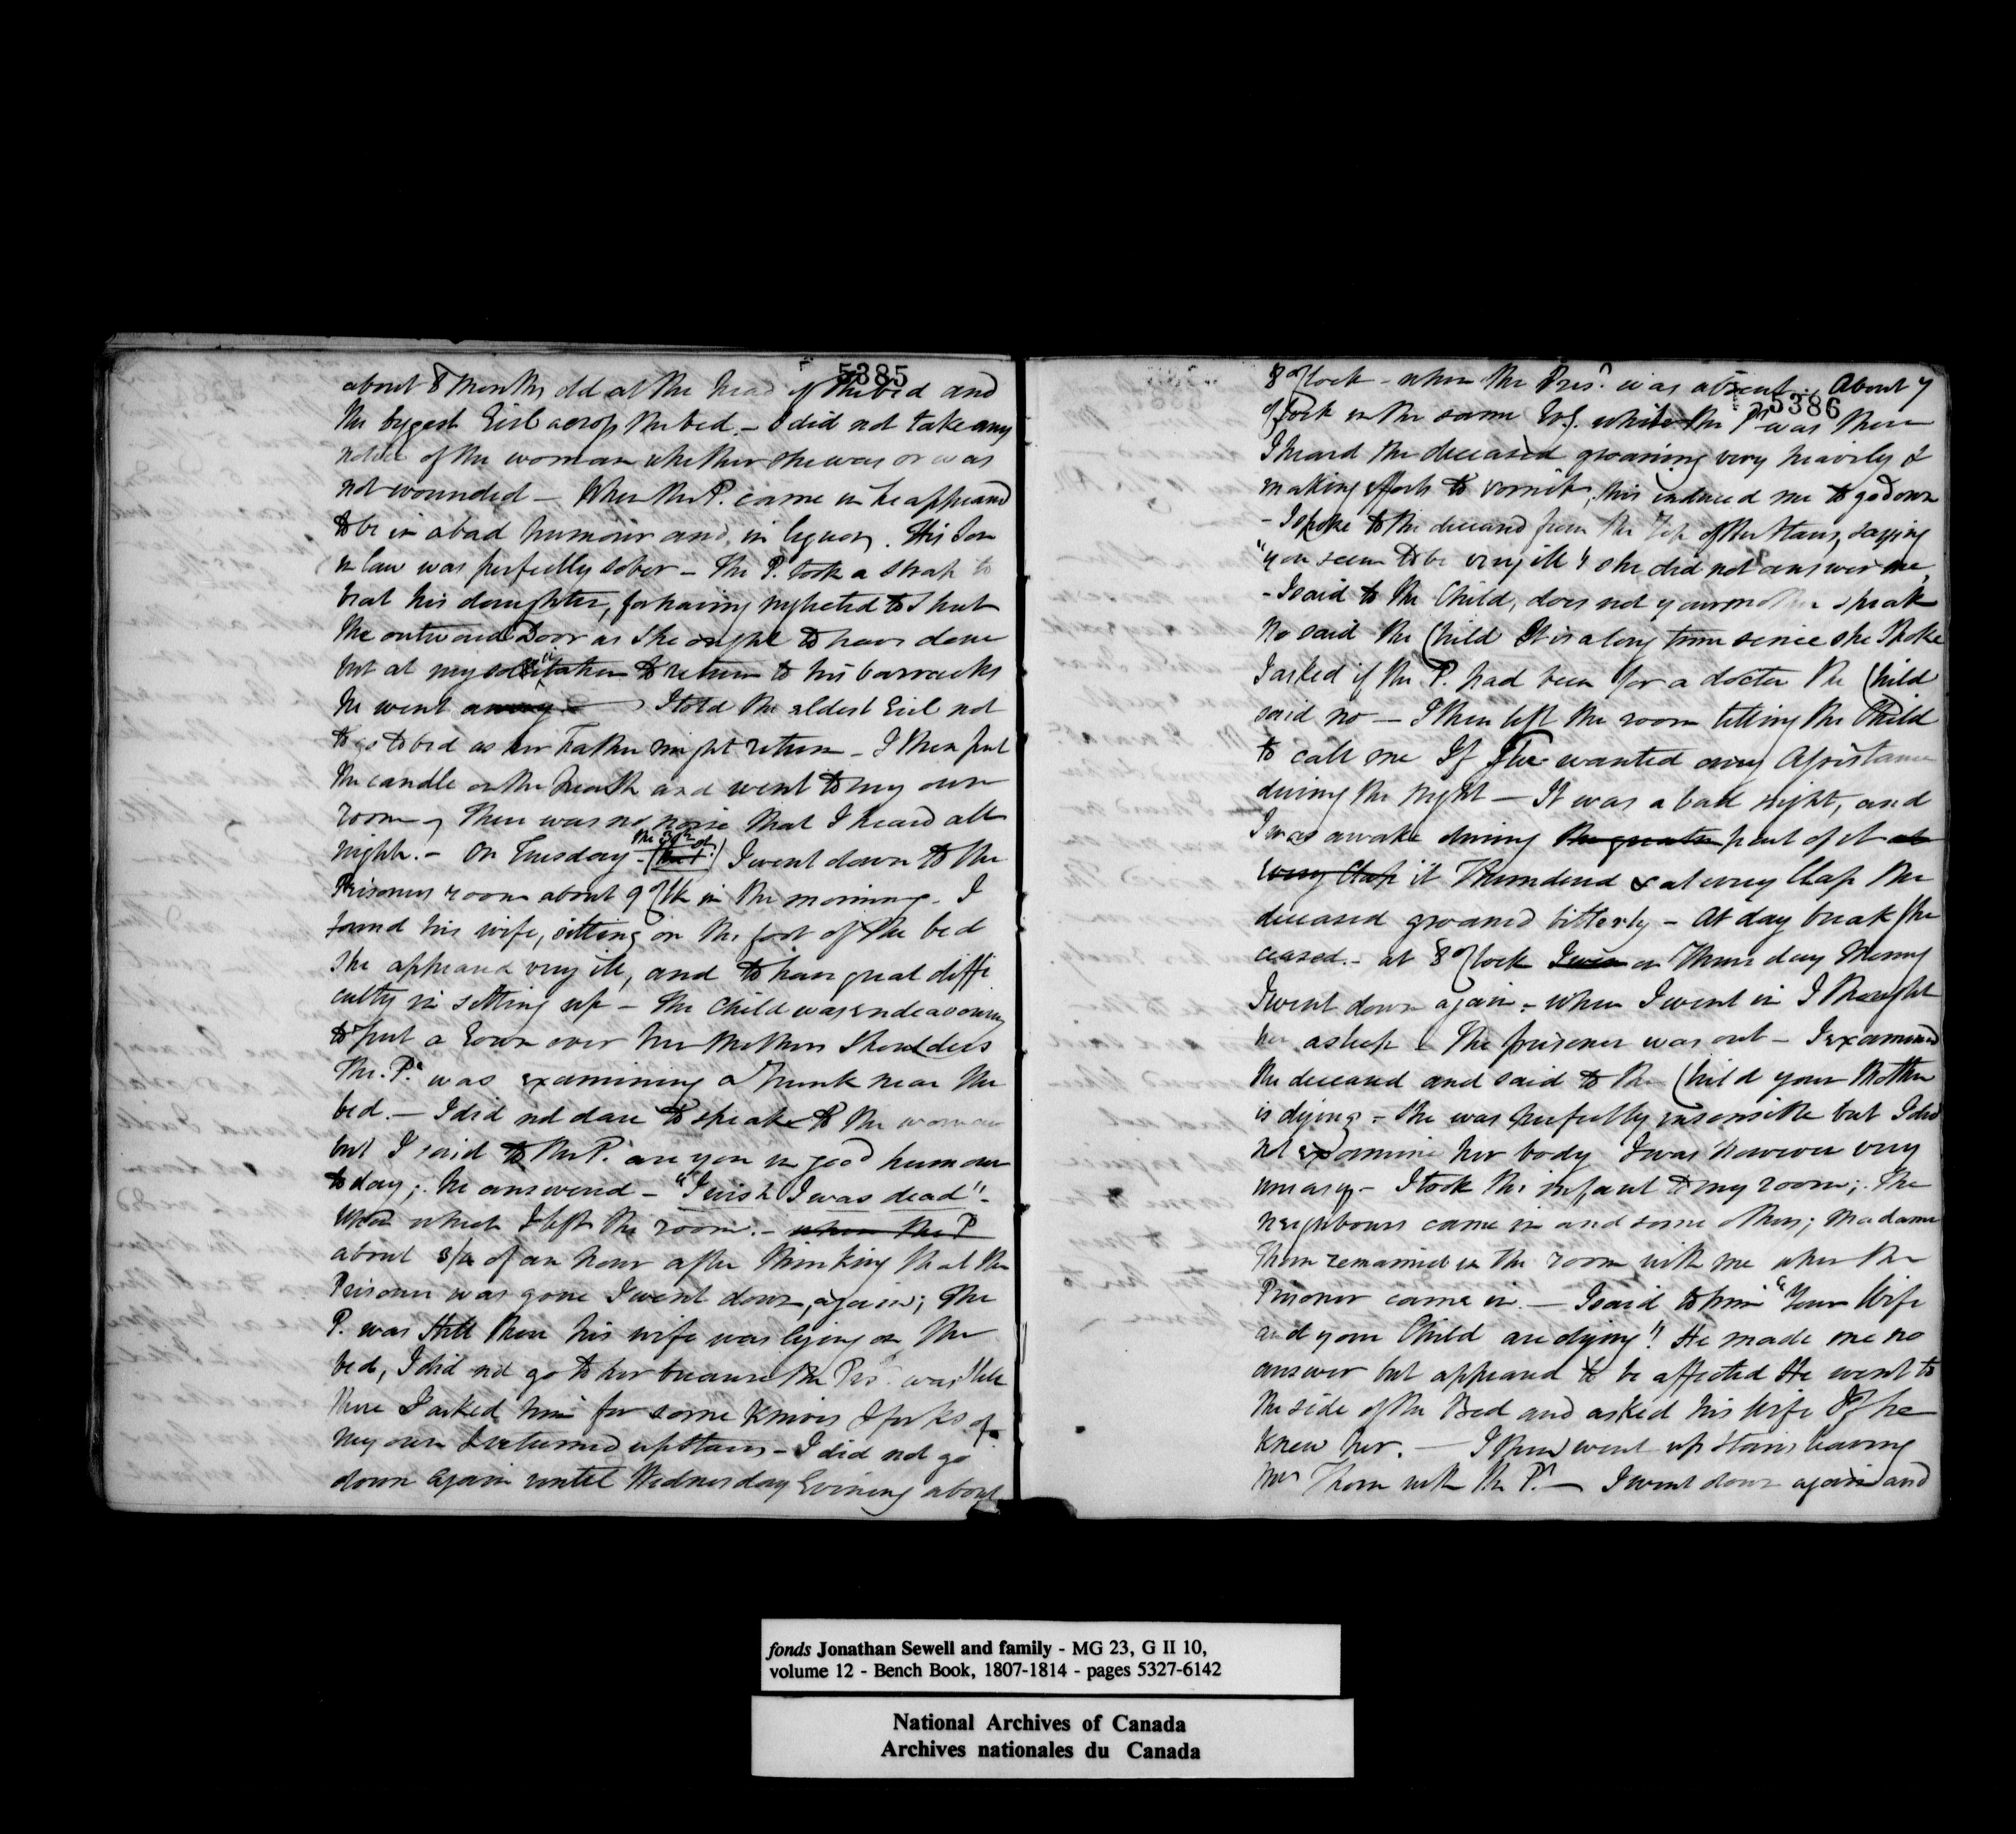 5385
about 8 months old at the head of the bed and
the biggest Girl across the bed. - I did not take any
notice of the woman whether she was or was
not wounded - When the P. came in he appeared
to be in a bad humour and in liquor. His Son
in law was perfectly sober - The P. took a strap to
beat his daughter, for having neglected to shut
the outward Door as she ought to have done
but at my solicitation to return to his barracks
he went away I told the eldest Girl not
to go to bed as her Father might return - I then put
the candle on the hearth and went to my own
room, there was no noise that I heard all
night. - On Tuesday I went down to the
Prisoners room about 9 oClk in the morning - I
found his wife, sitting on the foot of the bed
she appeared very ill, and to have great diffi
culty in sitting up - the Child was endeavouring
to put a Gown over her Mothers Shoulders
The P.r was examining a Trunk near the
bed. - I did not dare to speak to the woman
but I said to the P. are you in good humour
to day; he answered - "I wish I was dead" -
upon which I left the room. - when the P
about 3/4 of an hour after thinking that the
Prisoner was gone I went down again; the
P. was still there his wife was lying on the
bed, I did not go to her because the Pris.r was still
there I asked him for some Knives & forks of
my own & returned upstairs - I did not go
down again until Wednesday Evening about
5386
8 oClock - when the Pris.r was absent - About 7
oClock in the same Evg. while the P.r was there
I heard the deceased groaning very heavily &
making efforts to vomit, this induced me to go down
- I spoke to the deceased from the Top of the Stairs, saying
"you seem to be very ill" she did not answer me,
- I said to the Child, does not your mother speak
No said the Child It is a long time since she spoke
I asked if the P. had been for a doctor the Child
said no - I then left the room telling the Child
to call me If She wanted any Assistance
during the night - It was a bad night, and
I was awake during the greater part of it at
every Clap it Thundered & at every Clap the
deceased groaned bitterly - At day break she
ceased. - at 8 oClock on Thursday Morning
I went down again - when I went in I thought
her asleep - The prisoner was out - I examined
the deceased and said to the Child your Mother
is dying - She was perfectly insensible but I did
not examine her body I was however very
uneasy - I took the infant to my room; The
neighbours came in and some others; Madame
Thom remained in the room with me when the
Prisoner came in. - I said to him "Your Wife
and your Child are dying"! He made me no
answer but appeared to be affected He went to
the side of the Bed and asked his Wife If he
knew her. - I then went up Stairs leaving
Mrs Thom with the P.r - I went down again and
fonds Jonathan Sewell and family - MG 23, G II 10,
volume 12 - Bench Book, 1807-1814 - pages 5327-6142
National Archives of Canada
Archives nationales du Canada